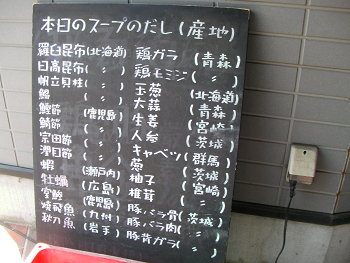 本日のスープのだし(産地)
羅臼昆布(北海道) 鶏ガラ(青森)
日高昆布(〃) 鶏モミジ(〃)
帆立貝柱(〃) 玉葱(北海道)
鰯(〃) 大蒜(青森)
鰹節(鹿児島) 生姜(宮崎)
鯖節(〃) 人参(茨城)
宗田節(〃) キャベツ(群馬)
混日節(〃) 葱(茨城)
蝦(瀬戸内) 柚子(宮崎)
牡蠣(広島) 椎茸(〃)
(鹿児島) 豚バラ骨(茨城)
焼飛魚(九州) 豚バラ肉(〃)
秋刀魚(岩手) 豚背ガラ(〃)